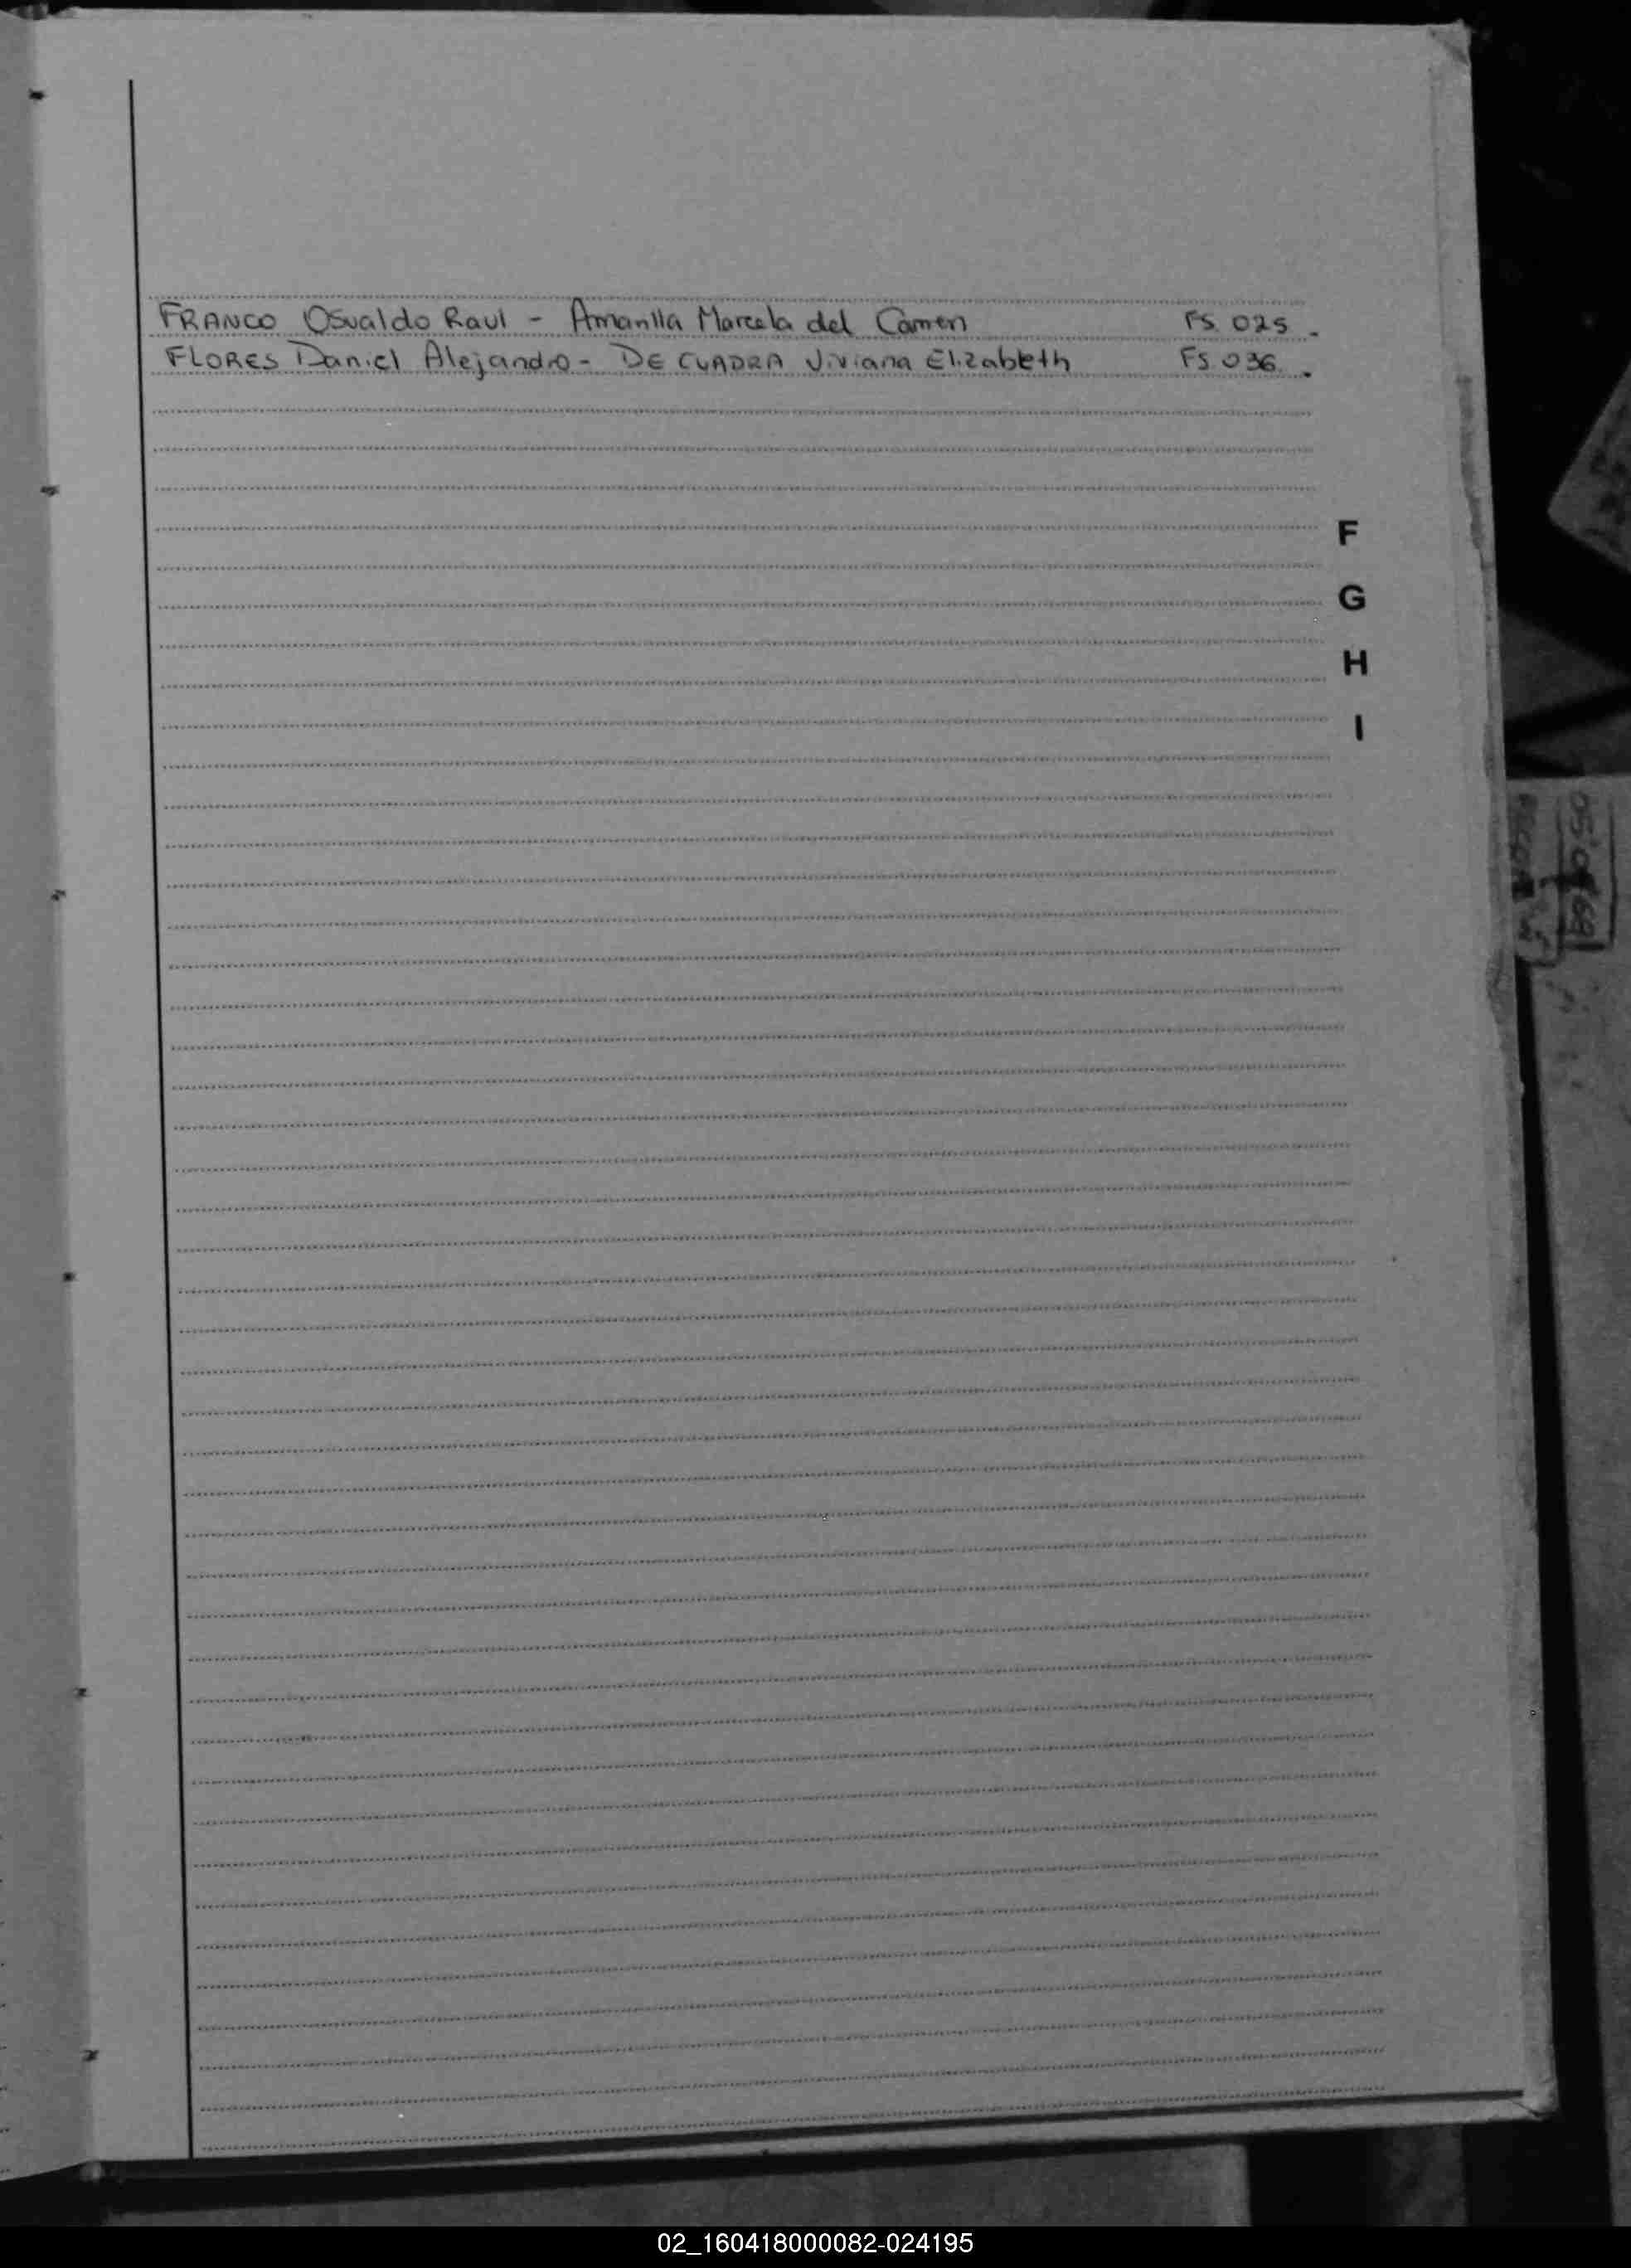 FRANCO Osvaldo Raul - Amarilla Marcela del Carmen FS. 025.
FLORES Daniel Alejandro - DE CUADRA Viviana Elizabeth FS. 036.
F
G
H
I
02_160418000082-024195